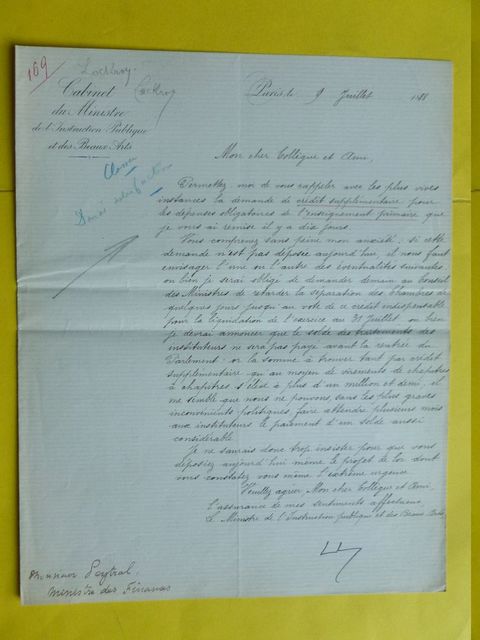 169
Lockroy
Lockroy
Cabinet
du Ministre
de l'Instruction Publique
et des Beaux Arts
Paris, le 9 Juillet 188
Classer
satisfaction
Mon cher Collègue et Ami,
Permettez moi de vous rappeler avec les plus vives
instances la demande de crédit supplémentaire pour
les dépenses obligatoires de l'enseignement primaire que
je vous ai remise il y a dix jours.
Vous comprenez sans peine mon anxiété : si cette
demande n'est pas déposée aujourd'hui, il nous faut
envisager l'une ou l'autre des éventualités suivantes
ou bien je serai obligé de demander demain au conseil
des Ministres de retarder la séparation des Chambres de
quelques jours jusqu'au vote de ce crédit indispensable
pour la liquidation de l'exercice au 31 Juillet ou bien
je devrai annoncer que le solde des traitements des
instituteurs ne sera pas payé avant la rentrée du
Parlement : or la somme à trouver tant par crédit
supplémentaire qu'au moyen de virements de chapitres
à chapitres s'élève à plus d'un million et demi, il
me semble que nous ne pouvons, sans les plus graves
inconvénients politiques, faire attendre plusieurs mois
aux instituteurs le paiement d'un solde aussi
considérable.
Je ne saurais donc trop insister pour que vous
déposiez aujourd'hui même le projet de loi dont
vous constatez vous même l'extrême urgence
Veuillez agréer, Mon cher Collègue et Ami,
l'assurance de mes sentiments affectueux.
Le Ministre de l'Instruction publique et des Beaux Arts
Monsieur Peytral
Ministre des Finances